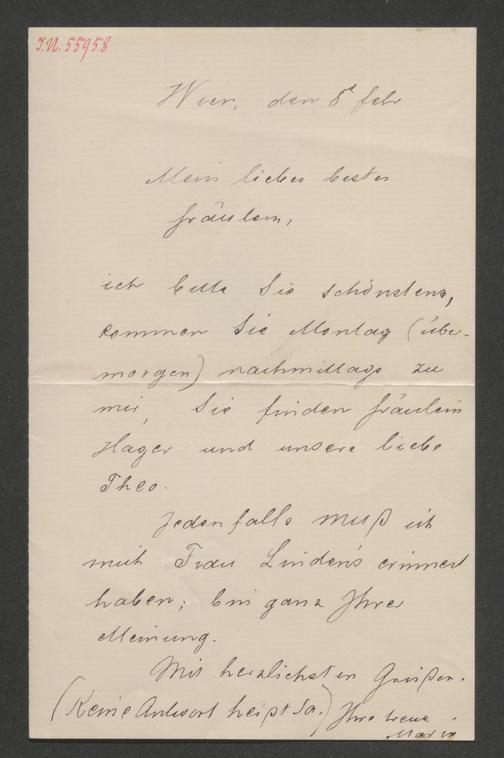 I.N. 55958
Wien, den 8t Febr
Mein liebes bestes
Fräulein,
ich bitte Sie schönstens,
kommen Sie Montag (über-
morgen) nachmittags zu
mir, Sie finden Fräulein
Hager und unsere liebe
Theo.
Jedenfalls muß ich
mich Frau Linden's erinnert
haben; bin ganz Ihrer
Meinung.
Mit herzlichsten Grüßen.
(Keine Antwort heißt Ja.) Ihre treue
Marie